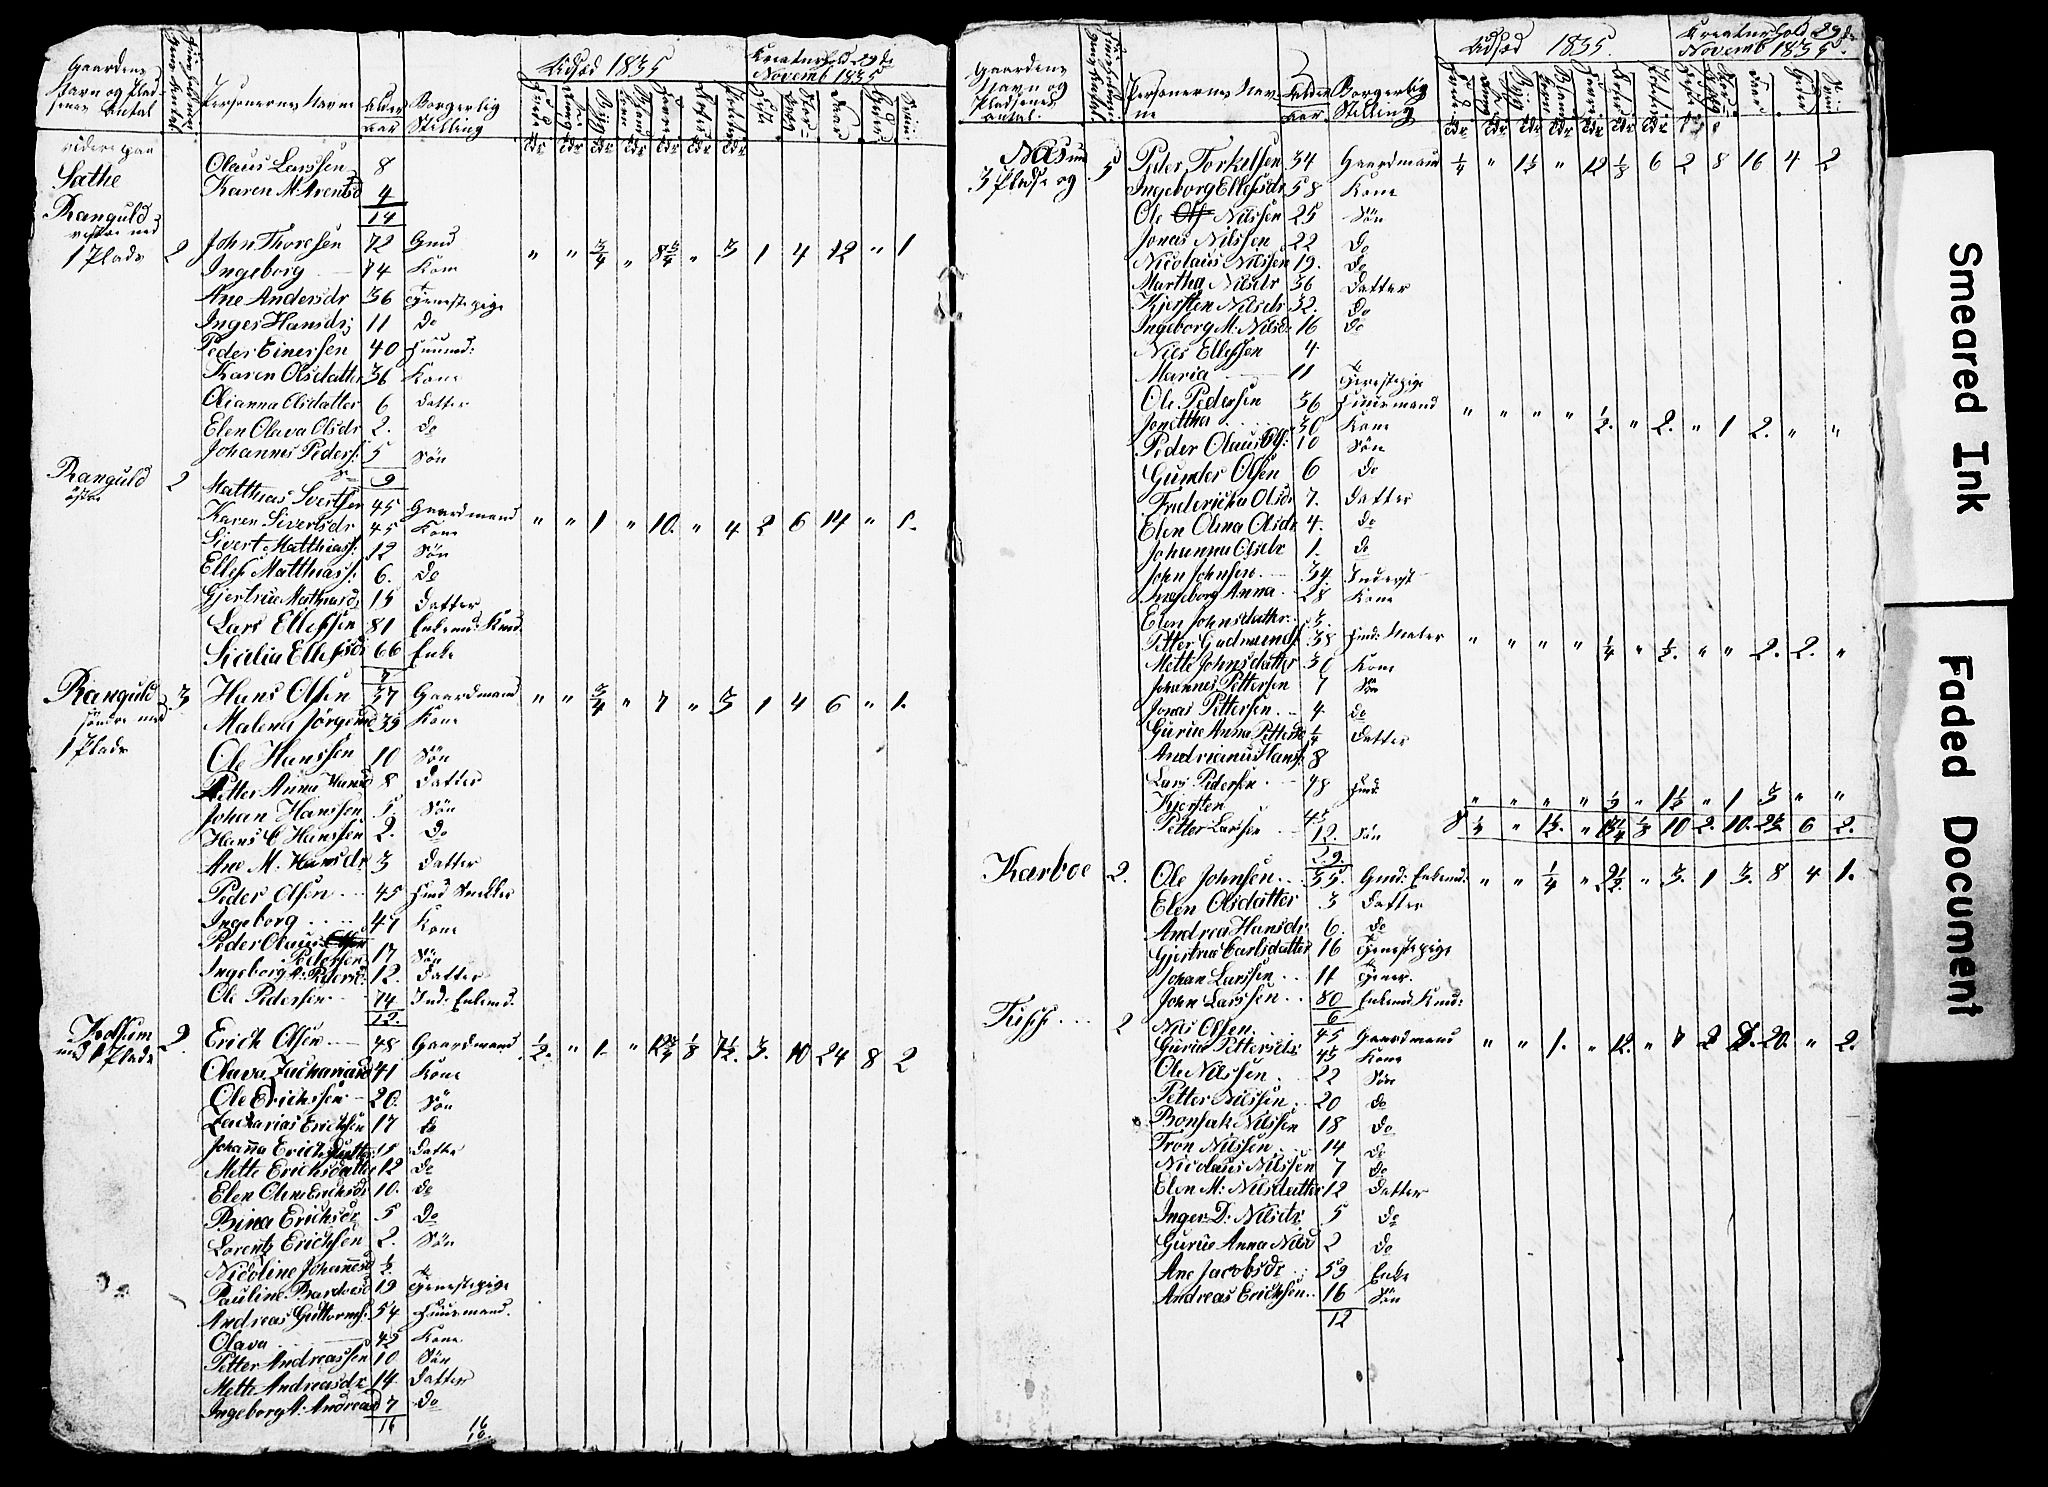 Gaardens
Navn og Plad-
senes Antal
Personernes Navne
Alder
Aar
Borgerlig
Stilling
Udsæd 1835
Kreaturhold 29de
Novemb 1835
videre paa
Sathe
Olaus Larssen 8
Karen M. Arentsd 4
14
Ranguld
vestre med
1 Plads 2 John Thoresen 72 Gmd " " 3/4 " 8 3/4 " 3 1 4 12 " 1
Ingeborg 74 Kone
Ane Andersdr 36 Tjenestepige
Inger Hansdr 11 do
Peder Einersen 40 Huusmd:
Karen Olsdatter 36 Kone
Olianna Olsdatter 6 Datter
Elen Olava Olsdr 2. do
Johannes Peders: 5 Søn
9
Ranguld 2
østre
Matthias Sivertsen 45 Gaardmand " " 1 " 10. " 4 2 6 14 " 1.
Karen Sivertsdr 45 Kone
Sivert Matthiass: 12 Søn
Ellef Matthiass: 6. do
Gjertrue Mathiasd 15 Datter
Lars Ellefsen 81 Enkemd: Kmd
Sicilia Ellefsdr 66 Enke
7
Ranguld 3 Hans Olsen 37 Gaardmand " " 3/4 " 7 " 3 1 4 6 " 1.
søndre med
1 Plads
Malena Jørgensd 39 Kone
Ole Hanssen 10 Søn
Petter Anna Hansd 8 Datter
Johan Hanssen 5. Søn
Hans C Hanssen 2. do
Ane M. Hansdr 3 Datter
Peder Olsen 45 Hmd Snekker
Ingeborg 47 Kone
Peder Olaus
Pedersen 17 Søn
Ingeborg A: Pedersd: 12. Datter
Ole Pedersen 74 Ind: Enkemd.
12.
Kolsum 2
med 1 Plads
Erich Olsen 48 Gaardmand 1/2. " 1. " 12 3/4 1/8 7 1/2. 3. 10 24 8 2
Olava Zachariasd 41 Kone
Ole Erichsen 20. Søn
Zacharias Erichsen 17 do
Johanna Erichsdatter 15 Datter
Mette Erichsdatter 12 do
Elen Oline Erichsdr 10. do
Bina Erichsdr 5 do
Lorentz Erichsen 2. Søn
Nicoline Johannesd 1/2.
Pauline Bardoesd 19 Tjenestepige
Andreas Guttormsf: 54 Huusmand.
Olava 42 Kone
Petter Andreassen 10 Søn
Mette Andreasdr 14. Datter
Ingeborg A: Andreasd 7 do
16
16
10.
Gaardens
Navn og
Pladsenes
Antal.
Personernes Nav-
ne
Alder
Aar
Borgerlig
Stilling
Udsæd 1835.
Kreaturhold 29de
Novemb 1835.
Næs med 5 Peder Torkelsen 34 Gaardmand 1/4 " 1 1/2 " 12 1/8 6 2 8 16 4 2
3 Pladse og
Ingeborg Ellefsdr 58 Kone
Ole Nilssen 25 Søn
Jonas Nilssen 22 do
Nicolaus Nilssen 19. do
Martha Nilsdr 36 Datter
Kjersten Nilsdr 32. do
Ingeborg M: Nilsdr 16 do
Nils Ellefssen 4.
Maria 11 Tjenestepige
Ole Pedersen 36 Huusmand " " " " 1/2. " 2. " 1 2. " "
Jonettha 30 Kone
Peder Olaus Ols: 10 Søn
Gunder Olsen 6 do
Fredericha Olsdr 7. Datter
Elen Olina Olsdr 4. do
Johanna Olsdr 1. do
John Johnsen 34. Inderst
Ingeborg Anna 28 Kone
Elen Johnsdatter 3.
Petter Gudmunds: 38 Hmd: Maler " " " " 1/4 " 1/2. " " 2. 2. "
Mette Johnsdatter 30 Kone
Johannes Pettersen 7 Søn
Jonas Pettersen 4. do
Gurue Anna Pettersdr 1/4 Datter
Andrianus Hans: 8
Lars Pedersen 48 Hmd: " " " " 1/2 " 1 1/2 " 1 3 " "
Kjersten 45
Petter Larssen 12. Søn
29
Karboe 2. Ole Johnsen 35. Gmd: Enkemd: " " 1/4 " 2 1/2 " 3. 1 3. 8 4 1.
Elen Olsdatter 3 Datter
Andrea Hansdr 6. do
Gjertrue Carlsdatter 16 Tjenestepige
Johan Larssen 11 Tjener.
John Larssen 80 Enkemd Kmd:
6
2 Nils Olsen 45 Gaardmand " " 1. " 12. " 7 2 20. " 2.
Gurue Pettersdr 45 Kone
Ole Nilssen 22 Søn
Petter Nilssen 20 do
Bonsak Nilssen 18 do
Tron Nilssen 14 do
Nicolaus Nilssen 7 do
Elen M: Nilsdatter 12 Datter
Inger D: Nilsdr 5 do
Gurue Anna Nilsd 2 do
Ane Jacobsdr 59 Enke
Andreas Erichsen 16 Søn
12
Smeared Ink
Faded Document